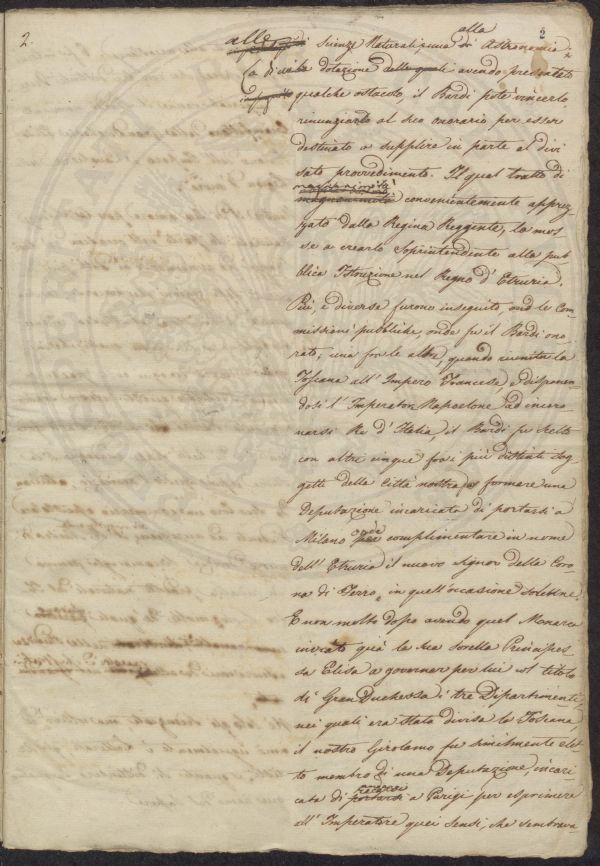 2.
2
alla
di Scienze Naturali, una di Astronomia;
dotazione delle quali avendo presentato
qualche ostacolo, il Bardi potè vincerlo,
rinunziando al suo onorario per esser
destinato a supplire in parte al divi
sato provvedimento. Il qual tratto di
magnanimità
magnanimità convenientemente apprez
zato dalla Regina Reggente, la mos
se a crearlo Soprintendente alla pub
blica Istruzione nel Regno d'Etruria.
Più, e diverse furono inseguito le Com
missioni pubbliche, onde fu il Bardi ono
rato; una fra le altre, quando riunita la
Toscana all'Impero Francese, e disponen
dosi l'Imperator Napoleone ad incoro
narsi Re d'Italia, il Bardi fu scelto
con altri cinque fra i più distinti Sog
getti della Città nostra per formare una
Deputazione incaricata di portarsi a
Milano onde complimentare in nome
dell'Etruria il nuovo Signor della Coro
na di Ferro, in quell'occasione solenne.
E non molto dopo avendo quel Monarca
inviato quà la sua sorella Principes
sa Elisa a governar per lui col titolo
di Gran Duchessa i tre Dipartimenti,
nei quali era stata divisa la Toscana,
il nostro Girolamo fu similmente elet
to membro di una Deputazione, incari
recarsi
cata di portarsi a Parigi per esprimere
all'Imperatore quei sensi, che sembrava